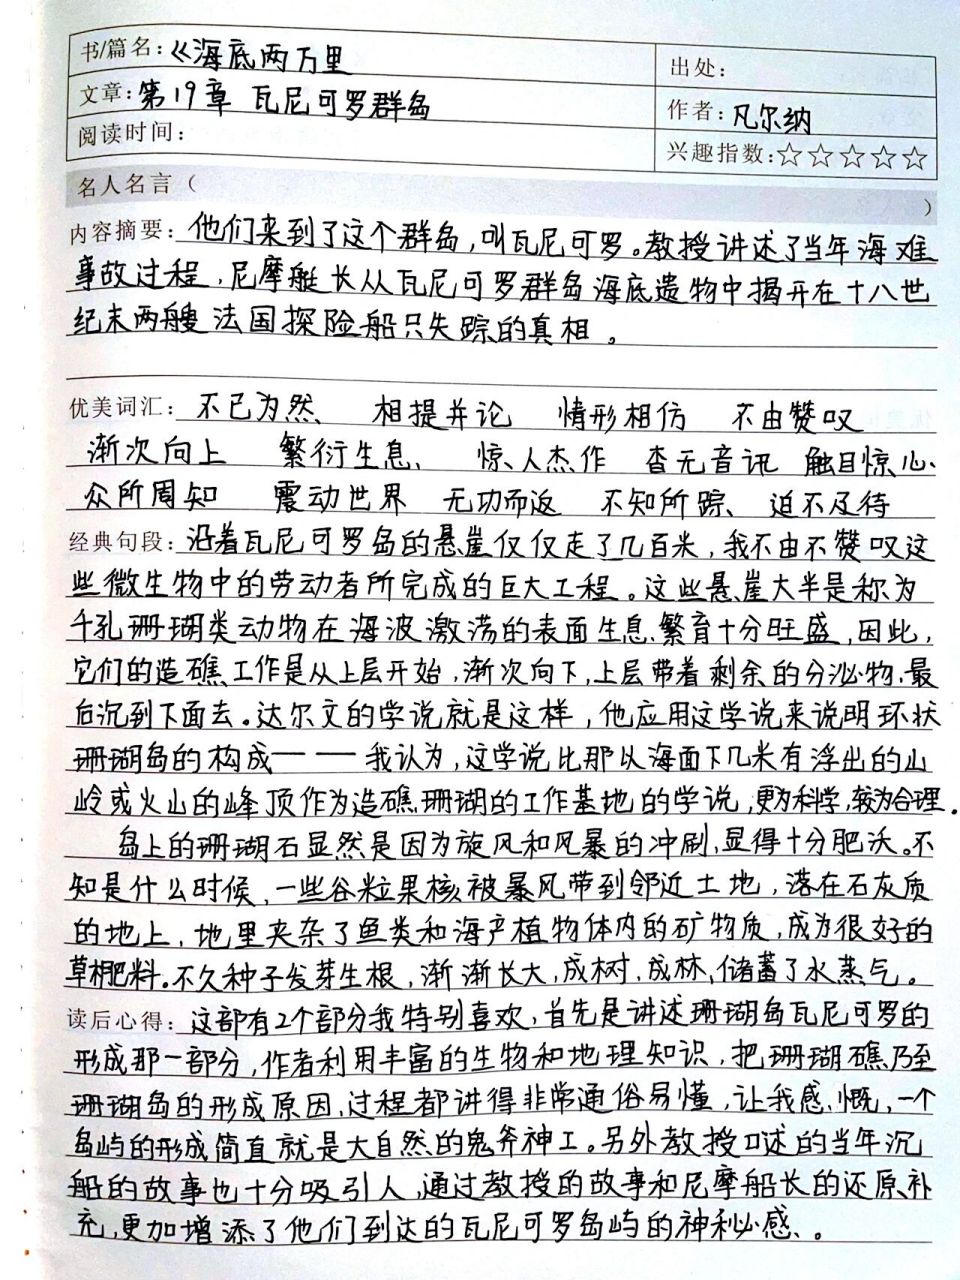 书/篇名：《海底两万里
出处：
文章：第19章 瓦尼可罗群岛
作者：凡尔纳
阅读时间：
兴趣指数：☆☆☆☆☆
名人名言（ ）
内容摘要：他们来到了这个群岛，叫瓦尼可罗。教授讲述了当年海难
事故过程，尼摩艇长从瓦尼可罗群岛海底遗物中揭开在十八世
纪末两艘法国探险船只失踪的真相。
优美词汇：不已为然、 相提并论 情形相仿 不由赞叹
渐次向上 繁衍生息、 惊人杰作 杳无音讯 触目惊心
众所周知 震动世界 无功而返 不知所踪、 迫不及待
经典句段：沿着瓦尼可罗岛的悬崖仅仅走了几百米，我不由不赞叹这
些微生物中的劳动者所完成的巨大工程。这些悬崖大半是称为
千孔珊瑚类动物在海波激荡的表面生息、繁育十分旺盛，因此，
它们的造礁工作是从上层开始，渐次向下，上层带着剩余的分泌物、最
后沉到下面去。达尔文的学说就是这样，他应用这学说来说明环状
珊瑚岛的构成——我认为，这学说比那以海面下几米有浮出的山
岭或火山的峰顶作为造礁珊瑚的工作基地的学说，更为科学，较为合理。
岛上的珊瑚石显然是因为旋风和风暴的冲刷，显得十分肥沃。不
知是什么时候，一些谷粒果核被暴风带到邻近土地，落在石灰质
的地上，地里夹杂了鱼类和海产植物体内的矿物质，成为很好的
草棚肥料。不久种子发芽生根，渐渐长大，成树，成林，储蓄了水蒸气。
读后心得：这部有2个部分我特别喜欢，首先是讲述珊瑚岛瓦尼可罗的
形成那一部分，作者利用丰富的生物和地理知识，把珊瑚礁乃至
珊瑚岛的形成原因、过程都讲得非常通俗易懂，让我感慨，一个
岛屿的形成简直就是大自然的鬼斧神工。另外教授口述的当年沉
船的故事也十分吸引人，通过教授的故事和尼摩船长的还原、补
充，更加增添了他们到达的瓦尼可罗岛屿的神秘感、。